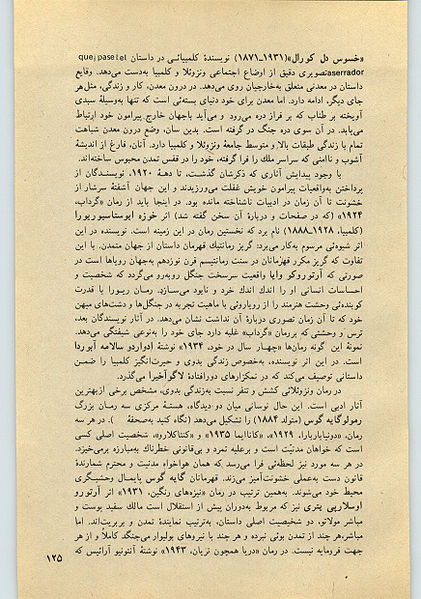 «خسوس دل کورال»(۱۹۳۱ـ۱۸۷۱) نویسندهٔ کلمبیائی در داستان que jpase el
aserrador تصویری دقیق از اوضاع اجتماعی ونزوئلا و کلمبیا به‌دست می‌دهد. وقایع
داستان در معدنی متعلق به‌خارجیان روی می‌دهد. در درون معدن، کار و زندگی، مثل هر
جای دیگر، ادامه دارد. اما معدن برای خود دنیای بسته‌ئی است که تنها به‌وسیلهٔ سبدی
آویخته بر طناب که بر فراز دره می‌رود و می‌آید باجهان خارج پیرامون خود ارتباط
می‌یابد. در آن سوی دره جنگ در گرفته است. بدین سان، وضع درون معدن شباهت
تمام با زندگی طبقات بالا و متوسط جامعهٔ ونزوئلا و کلمبیا دارد. آنان، فارغ از اندیشهٔ
آشوب و ناامنی که سراسر ملك را فرا گرفته، خود را در قفس تمدن محبوس ساخته‌اند.
با وجود پیدایش آثاری که ذکرشان گذشـت، تا دهـهٔ ۱۹۲۰، نویسنـدگان از
پرداختن به‌واقعیات پیرامون خویش غفلت می‌ورزیدند و این جهان آشفتهٔ سرشار از
خشونت تا آن زمان در ادبیات ناشناخته مانده بود. در اینجا باید از رمان «گرداب،
۱۹۲۴» (که در صفحات و دربارهٔ آن سخن گفته شد) اثر خوزه ایوستاسیوریورا
(کلمبیا، ۱۹۲۸ـ۱۸۸۸) نام برد که نخستین رمان در این زمینه است. نویسنده در این
اثر شیوه‌ئی مرسوم به‌کار می‌برد: گریز رمانتیك قهرمان داستان از جهان متمدن. با این
تفاوت که گریز مکرر قهرمانان در سنت رمانتیسم قرن نوزدهم به‌جهان رویاها است در
صورتی که آرتوروکو وایا واقعیت سرسخت جنگل روبه‌رو می‌گردد که شخصیت و
احساسات انسانی او را اندك اندك خرد و نابود می‌سـازد. رمـان ریـورا با قدرت
کوبنده‌ئی وحشت هنرمند را از رویاروئی با ماهیت تجربه در جنگل‌ها و دشت‌های میهن
خود که تا آن زمان تصوری دربارهٔ آن نداشت نشان می‌دهد. در آثار نویسندگان بعد،
ترس و وحشتی که بررمان «گرداب» غلبه دارد جای خود را به‌نوعی شیفتگی می‌دهد.
نمونهٔ این گونه رمان‌ها «چهـار سال در خود، ۱۹۳۴» نوشتهٔ ادواردو سالامه آبوردا
است. در این اثر نویسنده، به‌خصوص زندگی بدوی و حیرت‌انگیز کلمبیا را ضمـن
داستانی توصیف می‌کند که در نمکزارهای دورافتادهٔ لاگوآخیرا می‌گذرد.
در رمان ونزوئلائی کشش و تنفر نسبت به‌زندگی بدوی، مشخص برخی ازبهترین
آثار ادبی است. این حال نوسانی میان دو دیدگاه، هستهٔ مرکزی سه رمـان بزرگ
رمولوگایه گوس (متولد ۱۸۸۴) را تشکیل می‌دهد (نگاه کنید به‌صحفهٔ ). در هر سه
رمان، «دونیاباربارا، ۱۹۲۹»، «کاناایما ۱۹۳۵» و «کنتاکلارو»، شخصیت اصلی کسی
است که خواهان مدنیّت است و برعلیه تمرد و بی‌قانونی خطرناك به‌مبارزه برمی‌خیزد.
در هر سه مورد نیز لحظه‌ئی فرا می‌رسد که همان هواخواه مدنیت و محترم شمارندهٔ
قانون دست به‌عملی خشونت‌آمیز می‌زند. قهرمانان گایه گوس پایمـال وحشیـگری
محیط خود می‌شوند. به‌همین ترتیب در رمان «نیزه‌های رنگین، ۱۹۳۱» اثر آرتورو
اوسلارپی یتری نیز که مربوط به‌دوران پیش از استقلال است مالك سفید پوست و
مباشر مولاتو، دو شخصیت اصلی داستان، به‌ترتیب نمایندهٔ تمدن و بربریت‌اند. اما
مباشر، هر چند از تمدن بوئی نبرده و هر چند با نیروهای بولیوار می‌جنگد کاملاً و از هر
جهت فرومایه نیست. در رمان «دریا همچون نریان، ۱۹۴۳» نوشتهٔ آنتونیو آرائیس که
۱۲۵